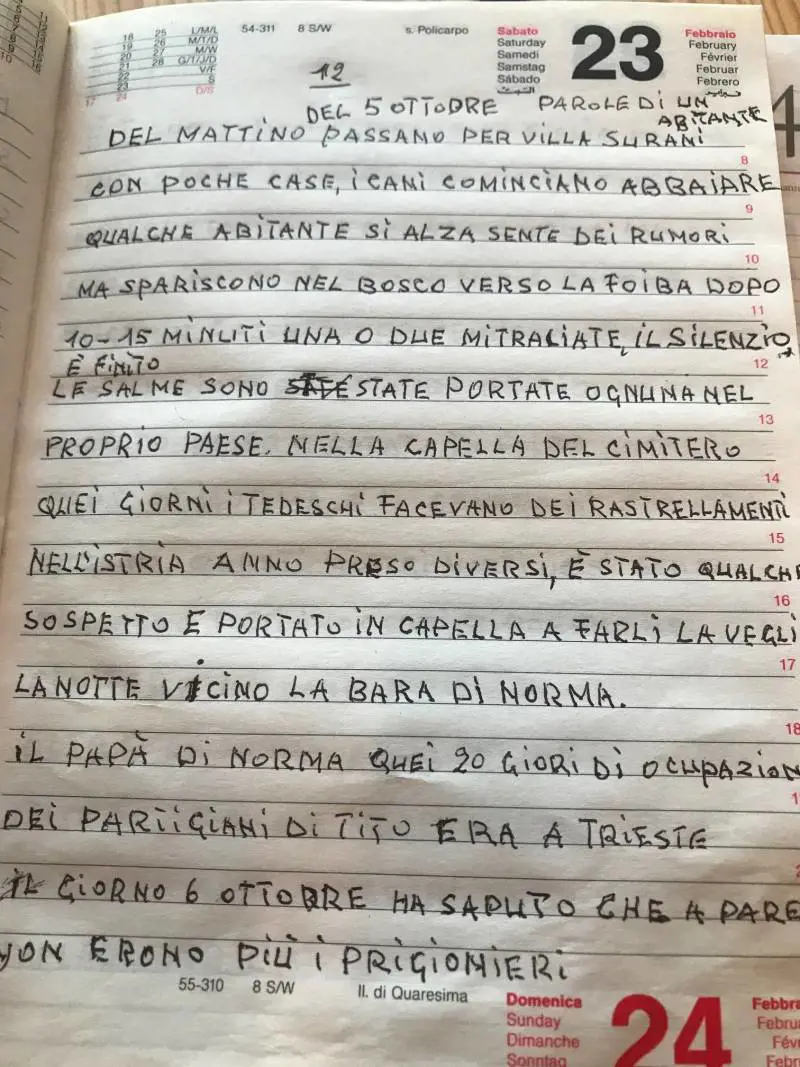 18 25 L/M/L
19 26 M/T/D
20 27 M/W
21 28 G/T/J/D
22 V/F
23 S
17 24 D/S
54-311 8 S/W s. Policarpo
Sabato
Saturday
Samedi
Samstag
Sábado
السبت
23
Febbraio
February
Février
Februar
Febrero
12
DEL 5 OTTODRE PAROLE DI UN
ABITANTE
DEL MATTINO PASSANO PER VILLA SURANI
8
CON POCHE CASE, I CANI COMINCIANO ABBAIARE
9
QUALCHE ABITANTE SI ALZA SENTE DEI RUMORI
10
MA SPARISCONO NEL BOSCO VERSO LA FOIBA DOPO
11
10-15 MINUTI UNA O DUE MITRALIATE, IL SILENZIO
È FINITO
12
LE SALME SONO STATE PORTATE OGNUNA NEL
13
PROPRIO PAESE. NELLA CAPELLA DEL CIMITERO
14
QUEI GIORNI I TEDESCHI FACEVANO DEI RASTRELLAMENTI
15
NELL'ISTRIA ANNO PRESO DIVERSI, È STATO QUALCHE
16
SOSPETTO E PORTATO IN CAPELLA A FARLI LA VEGLI
17
LA NOTTE VICINO LA BARA DI NORMA.
18
IL PAPÀ DI NORMA QUEI 20 GIORI DI OCUPAZION
DEI PARTIGIANI DI TITO ERA A TRIESTE
IL GIORNO 6 OTTOBRE HA SAPUTO CHE A PARE
NON ERONO PIÙ I PRIGIONIERI
55-310 8 S/W II. di Quaresima
Domenica
Sunday
Dimanche
Sonntag
24
Febbra
Februa
Févr
Febr